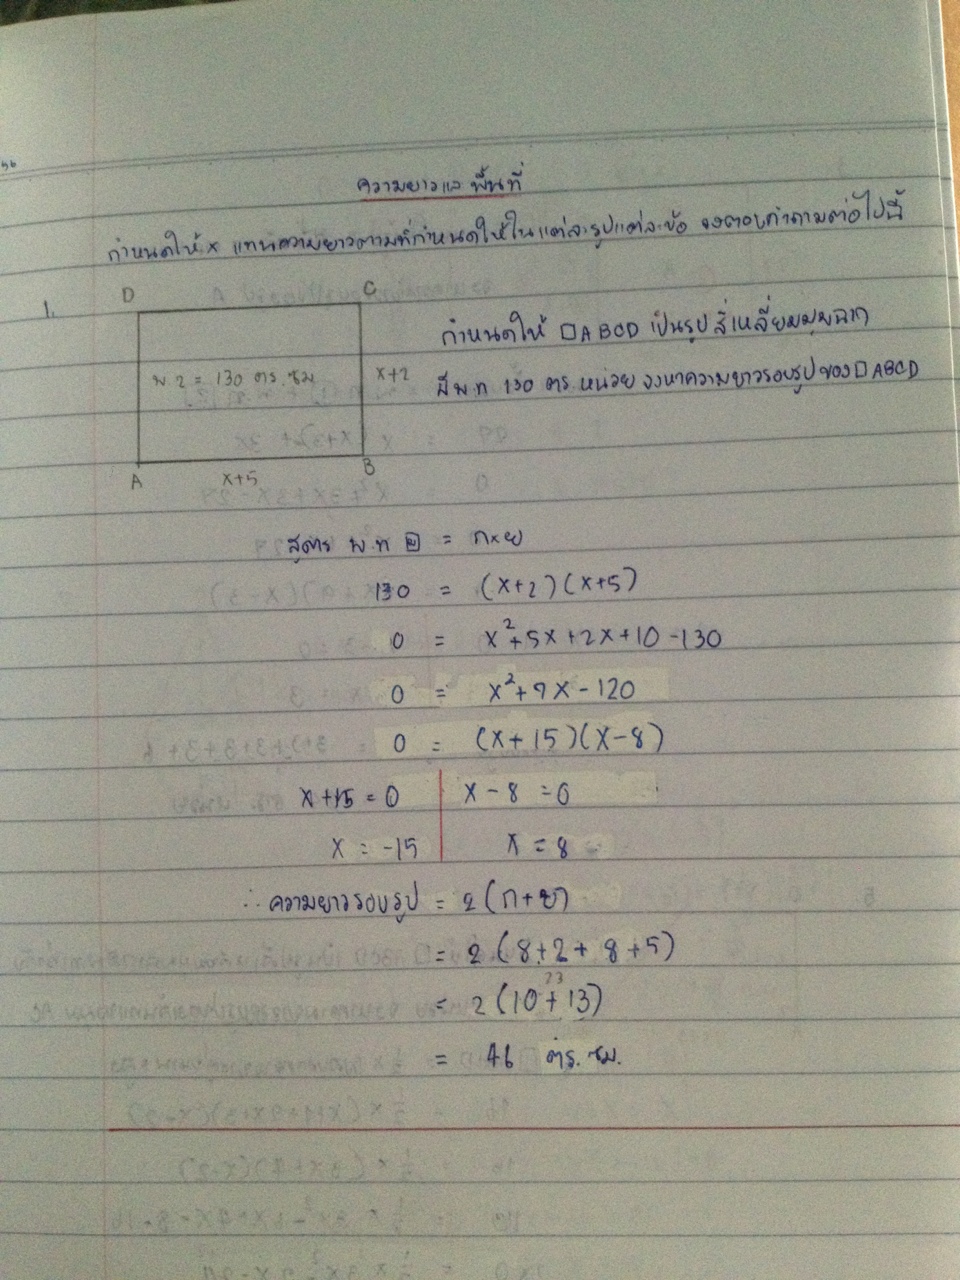 ความยาวและพื้นที่
กำหนดให้ x แทนความยาวตามที่กำหนดให้ในแต่ละรูปแต่ละข้อ จงตอบคำถามต่อไปนี้
1.
D C
กำหนดให้ □ABCD เป็นรูปสี่เหลี่ยมมุมฉาก
พ.ท = 130 ตร.ซม x+2
มีพ.ท 130 ตร.หน่วย จงหาความยาวรอบรูปของ□ABCD
A x+5 B
สูตร พ.ท = ก×ย
130 = (x+2)(x+5)
0 = x²+5x+2x+10-130
0 = x²+7x-120
0 = (x+15)(x-8)
x+15=0 x-8=0
x = -15 x = 8
∴ความยาวรอบรูป = 2(ก+ย)
= 2(8+2+8+5)
23
= 2(10+13)
= 46 ตร.ซม.